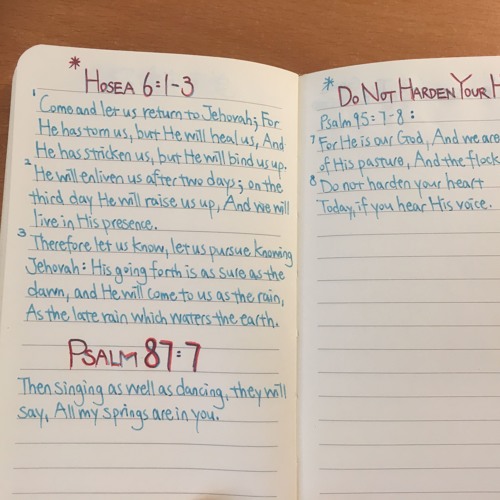 * Hosea 6:1-3
1 Come and let us return to Jehovah; For
He has torn us, but He will heal us, And
He has stricken us, but He will bind us up.
2 He will enliven us after two days; on the
third day He will raise us up, And we will
live in His presence.
3 Therefore let us know, let us pursue knowing
Jehovah: His going forth is as sure as the
dawn, and He will come to us as the rain,
As the late rain which waters the earth.
Psalm 87:7
Then singing as well as dancing, they will
say, All my springs are in you.
* Do Not Harden Your H
Psalm 95:7-8:
7 For He is our God, And we are
of His pasture, And the flock
8 Do not harden your heart
Today, if you hear His voice.